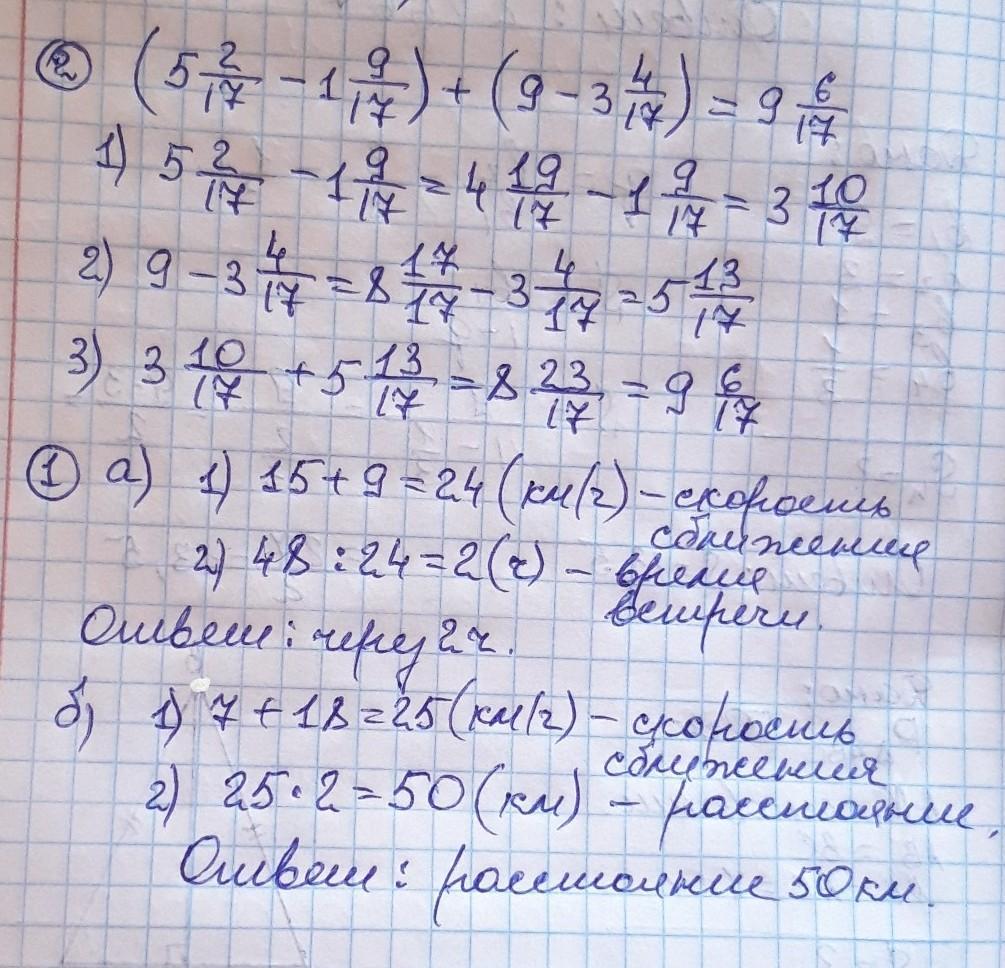 ② (5 2/17 - 1 9/17) + (9 - 3 4/17) = 9 6/17
1) 5 2/17 - 1 9/17 = 4 19/17 - 1 9/17 = 3 10/17
2) 9 - 3 4/17 = 8 17/17 - 3 4/17 = 5 13/17
3) 3 10/17 + 5 13/17 = 8 23/17 = 9 6/17
① а) 1) 15 + 9 = 24 (км/ч) - скорость
сближения
2) 48 : 24 = 2 (ч) - время
встречи.
Ответ: через 2 ч.
б) 1) 7 + 18 = 25 (км/ч) - скорость
сближения
2) 25 · 2 = 50 (км) - расстояние,
Ответ: расстояние 50 км.